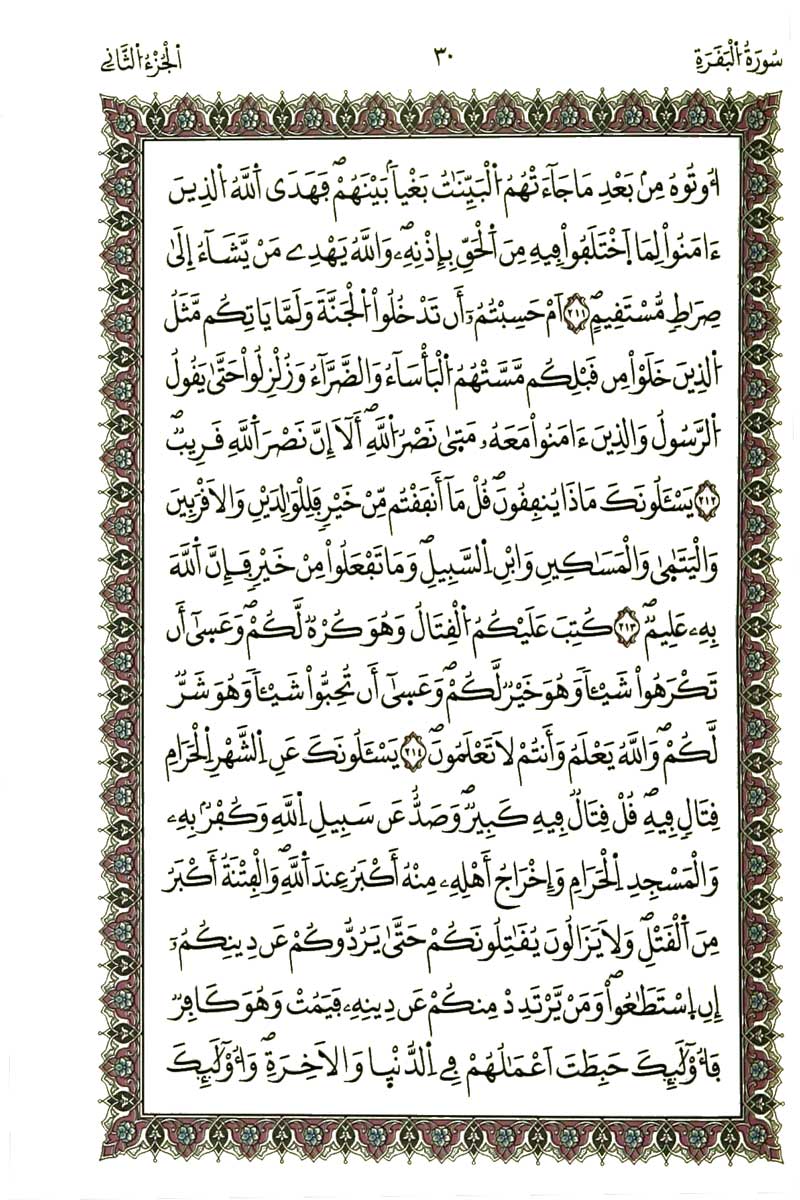 سُورَةُ الْبَقَرَةِ ٣٠ الْجُزْءُ الثَّانِي
اُوتُوهُ مِنۢ بَعْدِ مَا جَآءَتْهُمُ الْبَيِّنَٰتُ بَغْياَۢ بَيْنَهُمْۖ فَهَدَى اَللَّهُ الذِينَ
ءَامَنُواْ لِمَا اَخْتَلَفُواْ فِيهِ مِنَ اَلْحَقِّ بِإِذْنِهِۦۖ وَاللَّهُ يَهْدِے مَنْ يَّشَآءُ اِلَىٰ
صِرَٰطٖ مُّسْتَقِيمٍۖ ٢١١ اَمْ حَسِبْتُمُۥٓ أَن تَدْخُلُواْ الْجَنَّةَ وَلَمَّا يَاتِكُم مَّثَلُ
الذِينَ خَلَوْاْ مِن قَبْلِكُم مَّسَّتْهُمُ الْبَأْسَآءُ وَالضَّرَّآءُ وَزُلْزِلُواْ حَتَّىٰ يَقُولُ
الرَّسُولُ وَالذِينَ ءَامَنُواْ مَعَهُۥ مَتَىٰ نَصْرُ اللَّهِۖ أَلَآ إِنَّ نَصْرَ اَللَّهِ قَرِيبٞۖ
٢١٢ يَسْـَٔلُونَكَ مَاذَا يُنفِقُونَۖ قُلْ مَآ أَنفَقْتُم مِّنْ خَيْرٖ فَلِلْوَٰلِدَيْنِ وَالَاقْرَبِينَ
وَالْيَتَٰمَىٰ وَالْمَسَٰكِينِ وَابْنِ اِلسَّبِيلِۖ وَمَا تَفْعَلُواْ مِنْ خَيْرٖ فَإِنَّ اَللَّهَ
بِهِۦ عَلِيمٞۖ ٢١٣ كُتِبَ عَلَيْكُمُ الْقِتَالُ وَهُوَ كُرْهٞ لَّكُمْۖ وَعَسَىٰٓ أَن
تَكْرَهُواْ شَيْـٔاٗ وَهُوَ خَيْرٞ لَّكُمْۖ وَعَسَىٰٓ أَن تُحِبُّواْ شَيْـٔاٗ وَهُوَ شَرّٞ
لَّكُمْۖ وَاللَّهُ يَعْلَمُ وَأَنتُمْ لَا تَعْلَمُونَۖ ٢١٤ يَسْـَٔلُونَكَ عَنِ اِلشَّهْرِ اِلْحَرَامِ
قِتَالٖ فِيهِۖ قُلْ قِتَالٞ فِيهِ كَبِيرٞۖ وَصَدٌّ عَن سَبِيلِ اِللَّهِ وَكُفْرُۢ بِهِۦ
وَالْمَسْجِدِ اِلْحَرَامِ وَإِخْرَاجُ أَهْلِهِۦ مِنْهُ أَكْبَرُ عِندَ اَللَّهِۖ وَالْفِتْنَةُ أَكْبَرُ
مِنَ اَلْقَتْلِۖ وَلَا يَزَالُونَ يُقَٰتِلُونَكُمْ حَتَّىٰ يَرُدُّوكُمْ عَن دِينِكُمُۥٓ
إِنِ اِسْتَطَٰعُواْۖ وَمَنْ يَّرْتَدِدْ مِنكُمْ عَن دِينِهِۦ فَيَمُتْ وَهُوَ كَافِرٞ
فَأُوْلَٰٓئِكَ حَبِطَتَ اَعْمَٰلُهُمْ فِے اِلدُّنْيَا وَالَاخِرَةِۖ وَأُوْلَٰٓئِكَ